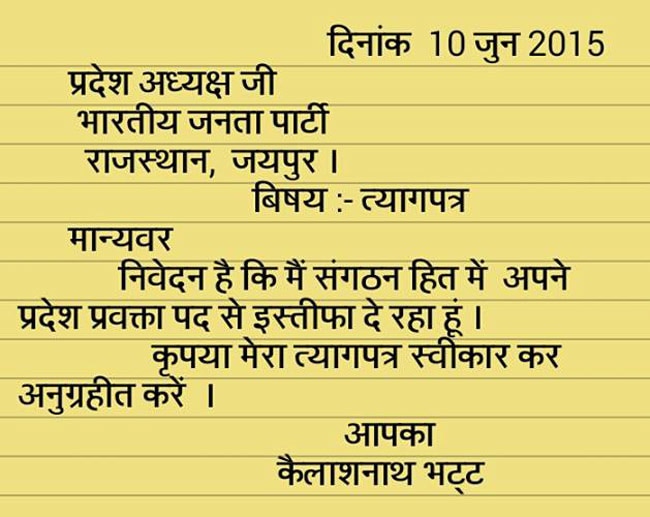 दिनांक 10 जुन 2015
प्रदेश अध्यक्ष जी
भारतीय जनता पार्टी
राजस्थान, जयपुर ।
बिषय :- त्यागपत्र
मान्यवर
निवेदन है कि मैं संगठन हित में अपने
प्रदेश प्रवक्ता पद से इस्तीफा दे रहा हूं ।
कृपया मेरा त्यागपत्र स्वीकार कर
अनुग्रहीत करें ।
आपका
कैलाशनाथ भट्ट